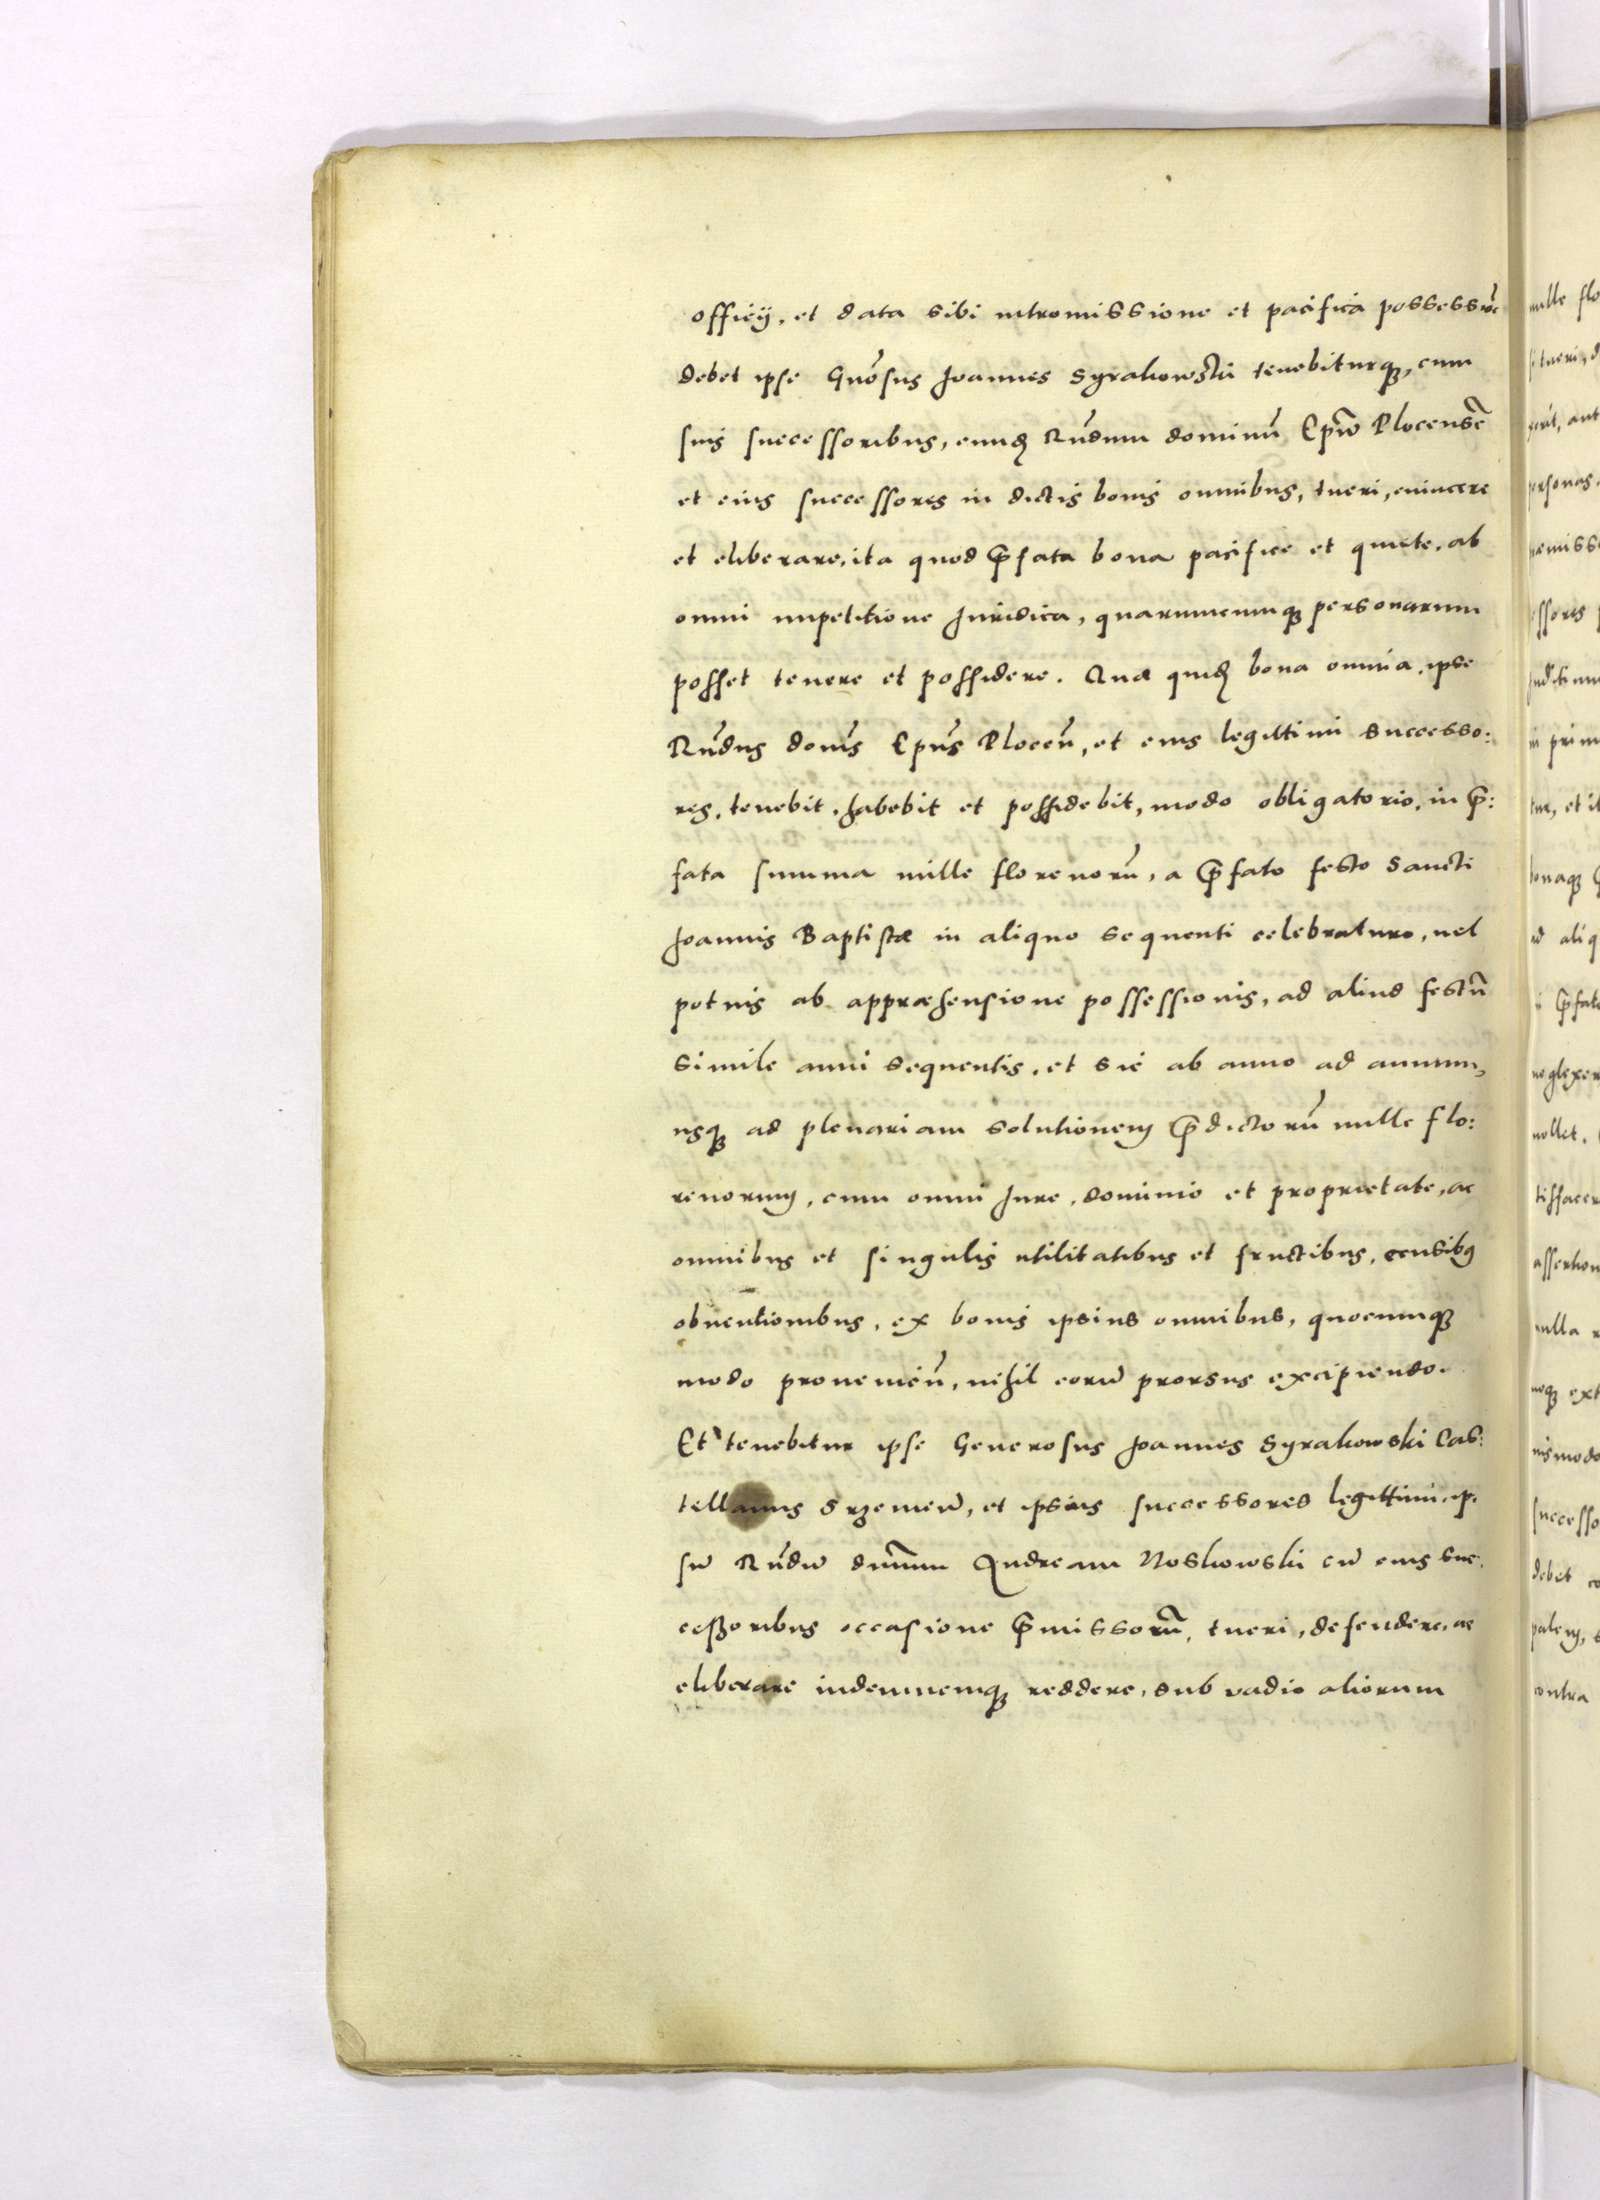 officij, et data sibi intromissione et pacifica possessiõe
debet ipse Gnõsus Joannes Syrakowski tenebiturq₃, cum
suis successoribus, eund̨ Rñdum dominũ Ep̃ũ Plocensẽ
et eius successores in dictis bonis omnibus, tueri, euincere
et eliberare, ita quod p̃fata bona pacifice et quiete, ab
omni impetitione Juridica, quarumcumq₃ personarum
posset tenere et possidere. Quæ quid̨ bona omnia, ipse
Rñdus domñs Ep̃us Plocen̄, et eius legittimi successo:
res, tenebit, habebit et possidebit, modo obligatorio, in p̃:
fata summa mille florenorũ, a p̃fato festo Sancti
Joannis Baptistæ in aliquo sequenti celebraturo, uel
potius ab appræhensione possessionis, ad aliud festũ
simile anni sequentis, et sic ab anno ad annum,
usq₃ ad plenariam solutionem p̃dictorũ mille flo:
renorum, cum omni Jure, dominio et proprietate, ac
omnibus et singulis utilitatibus et fructibus, censibus
obuentionibus, ex bonis ipsius omnibus, quocumq₃
modo prouenien̄, nihil eorũ prorsus excipiendo.
Et tenebitur ipse Generosus Joannes Syrakowski Cas:
tellanus Srzemeñ, et ipsius successores legittimi, ip:
sũ Rñdũ dñum Andream Noskowski cũ eius suc:
cessoribus occasione p̃missorũ, tueri, defendere, ac
eliberare indemnemq₃ reddere, sub vadio aliorum